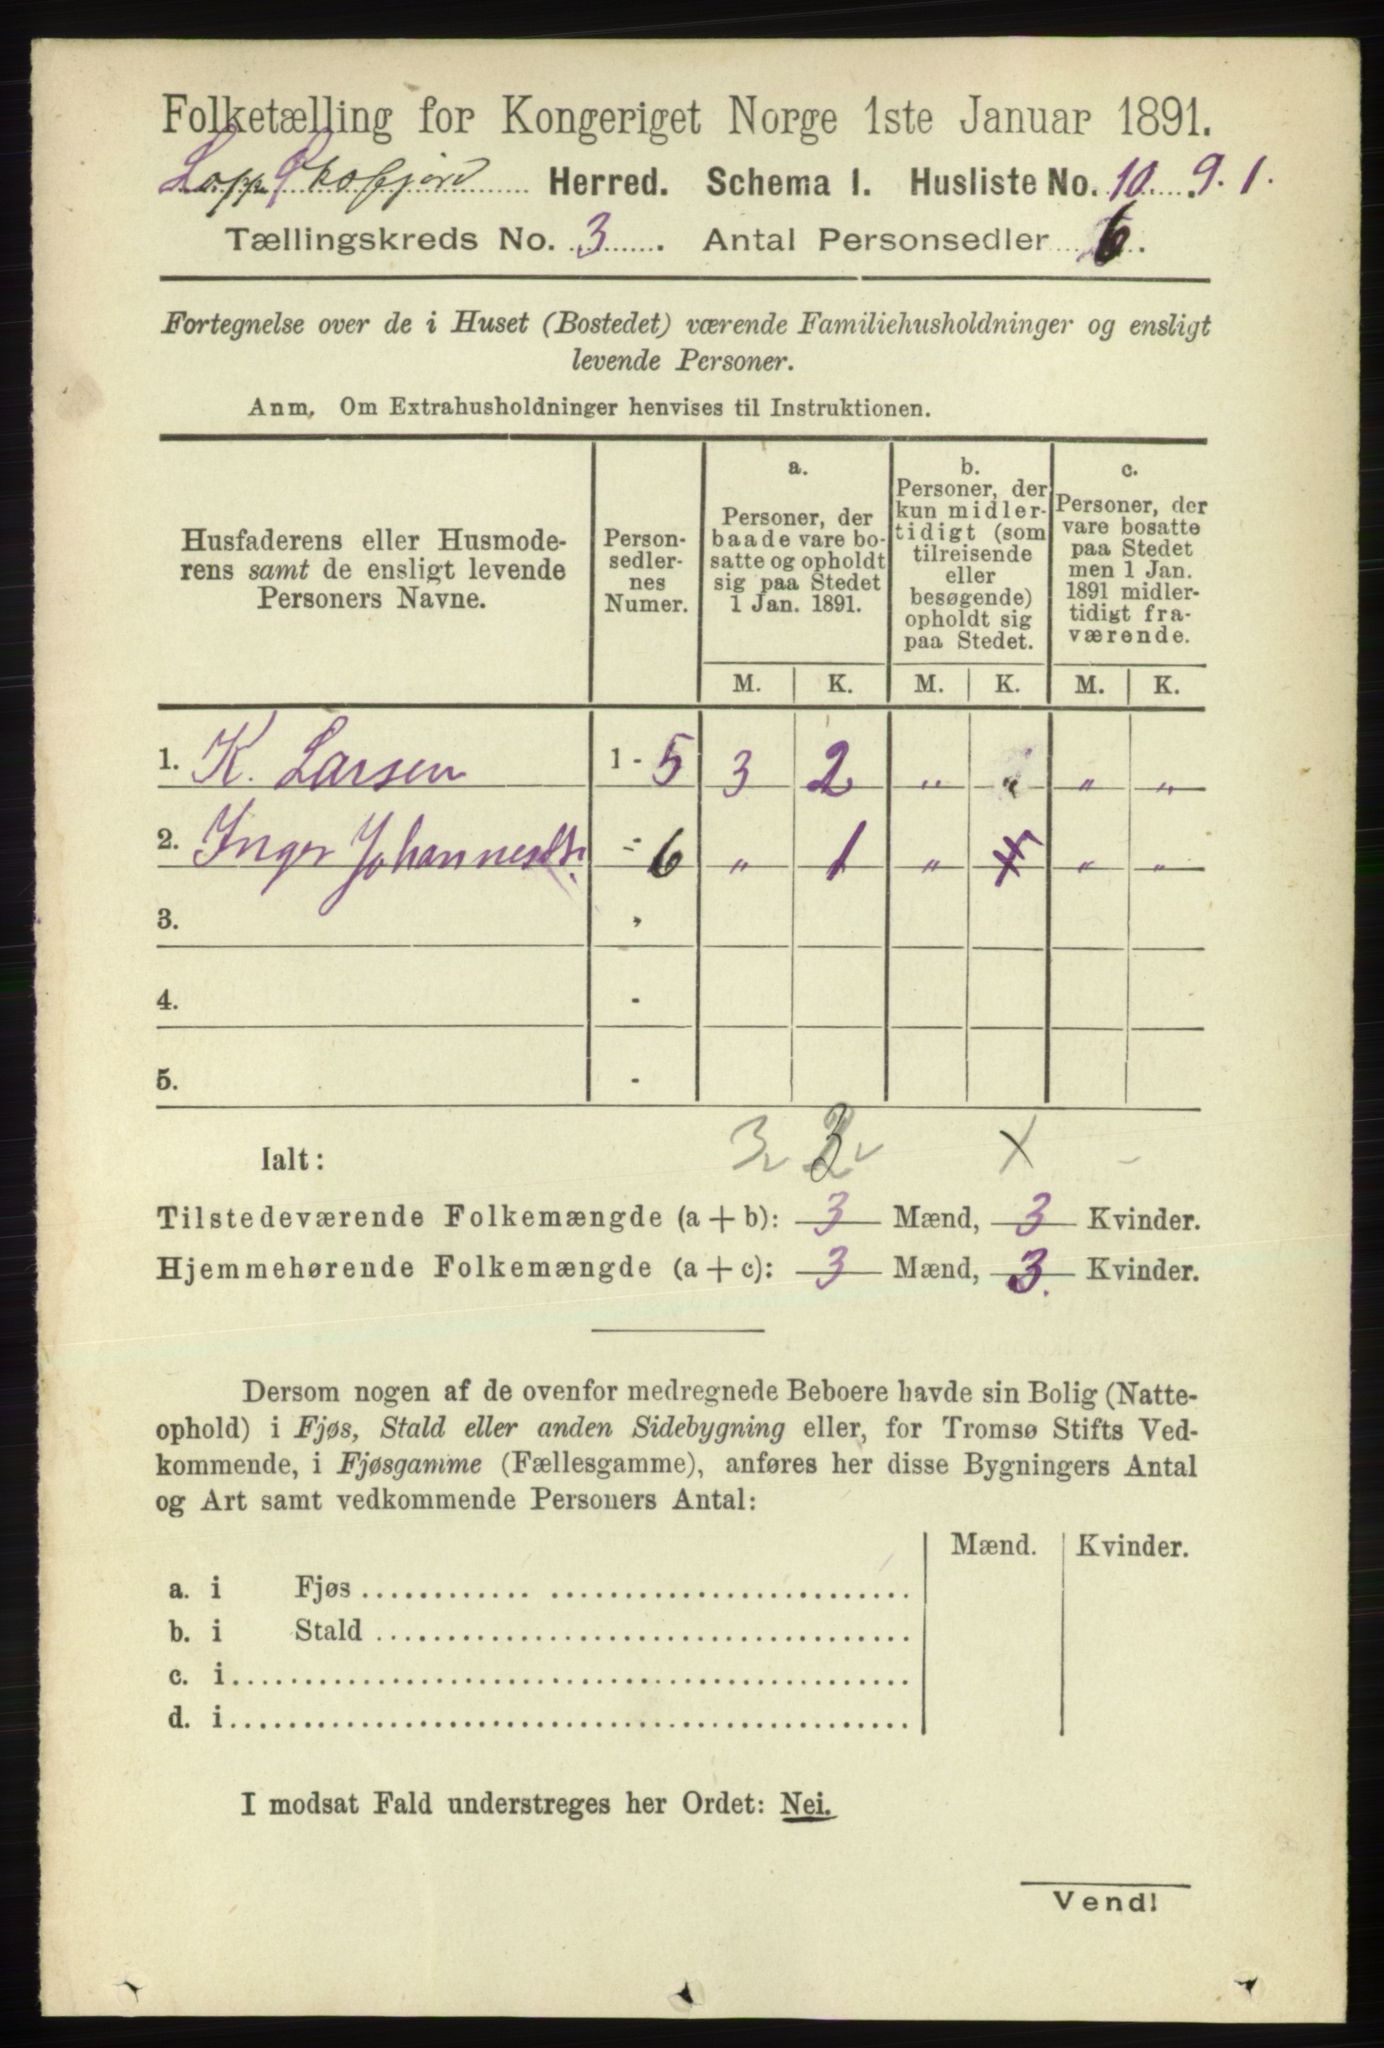 Folketælling for Kongeriget Norge 1ste Januar 1891.
Herred. Schema 1. Husliste No. 10 9.1.
Tællingskreds No. 3. Antal Personsedler 6.
Fortegnelse over de i Huset (Bostedet) værende Familiehusholdninger og ensligt
levende Personer.
Anm. Om Extrahusholdninger henvises til Instruktionen.
Husfaderens eller Husmode-
rens samt de ensligt levende
Personers Navne.
Person-
sedler-
nes
Numer.
a.
Personer, der
baade vare bo-
satte og opholdt
sig paa Stedet
1 Jan. 1891.
b.
Personer, der
kun midler-
tidigt (som
tilreisende
eller
besøgende)
opholdt sig
paa Stedet.
c.
Personer, der
vare bosatte
paa Stedet
men 1 Jan.
1891 midler-
tidigt fra-
værende.
M. K. M. K. M. K.
1. K. Larsen 1 - 5 3 2 " " " "
2. Inger Johannesdtr. - 6 " 1 " " "
3. -
4. -
5. -
Ialt: 3 3 x -
Tilstedeværende Folkemængde (a + b): 3 Mænd, 3 Kvinder.
Hjemmehørende Folkemængde (a + c): 3 Mænd, 3 Kvinder.
Dersom nogen af de ovenfor medregnede Beboere havde sin Bolig (Natte-
ophold) i Fjøs, Stald eller anden Sidebygning eller, for Tromsø Stifts Ved-
kommende, i Fjøsgamme (Fællesgamme), anføres her disse Bygningers Antal
og Art samt vedkommende Personers Antal:
Mænd. Kvinder.
a. i Fjøs
b. i Stald
c. i
d. i
I modsat Fald understreges her Ordet: Nei.
Vend!